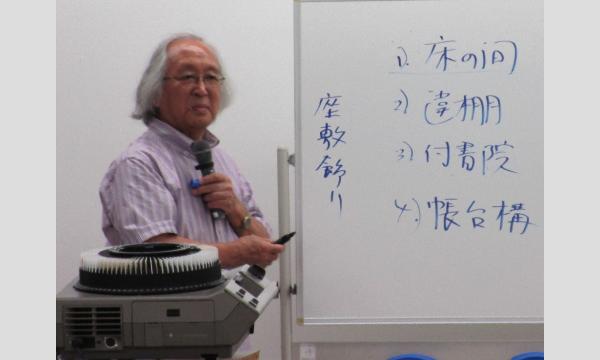 座敷飾り
1) 床の間
2) 違棚
3) 付書院
4) 帳台構